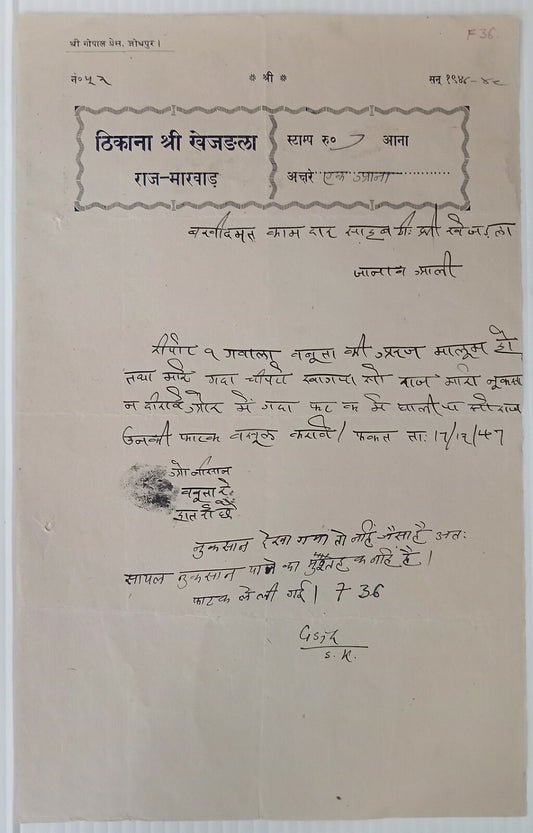 श्री गोपाल प्रेस, जोधपुर।
F 36.
नं० ५२
* श्री *
सन् १९४८-४९
ठिकाना श्री खेजड़ला
राज-मारवाड़
स्टाम्प रु० आना
अक्षरे एक आना
काम दार साहब ठी: श्री खेजड़ला
रीपोट १ गवाला बनुता की अरज मालुम हो
तथा मारे गदा राज मारो नुकसा
न और में गदा फाटक मे
उनकी फाटक वसूल करावे / फकत ता: 17/12/47
ओ नीसान
बनुता रे
हात रो छै
नुकसान देखा गया तो नहिं जैसा है अतः
सायल नुकसान पाने का मुस्तहक नहिं है।
फाटक ले ली गई। 7 36
S. K.